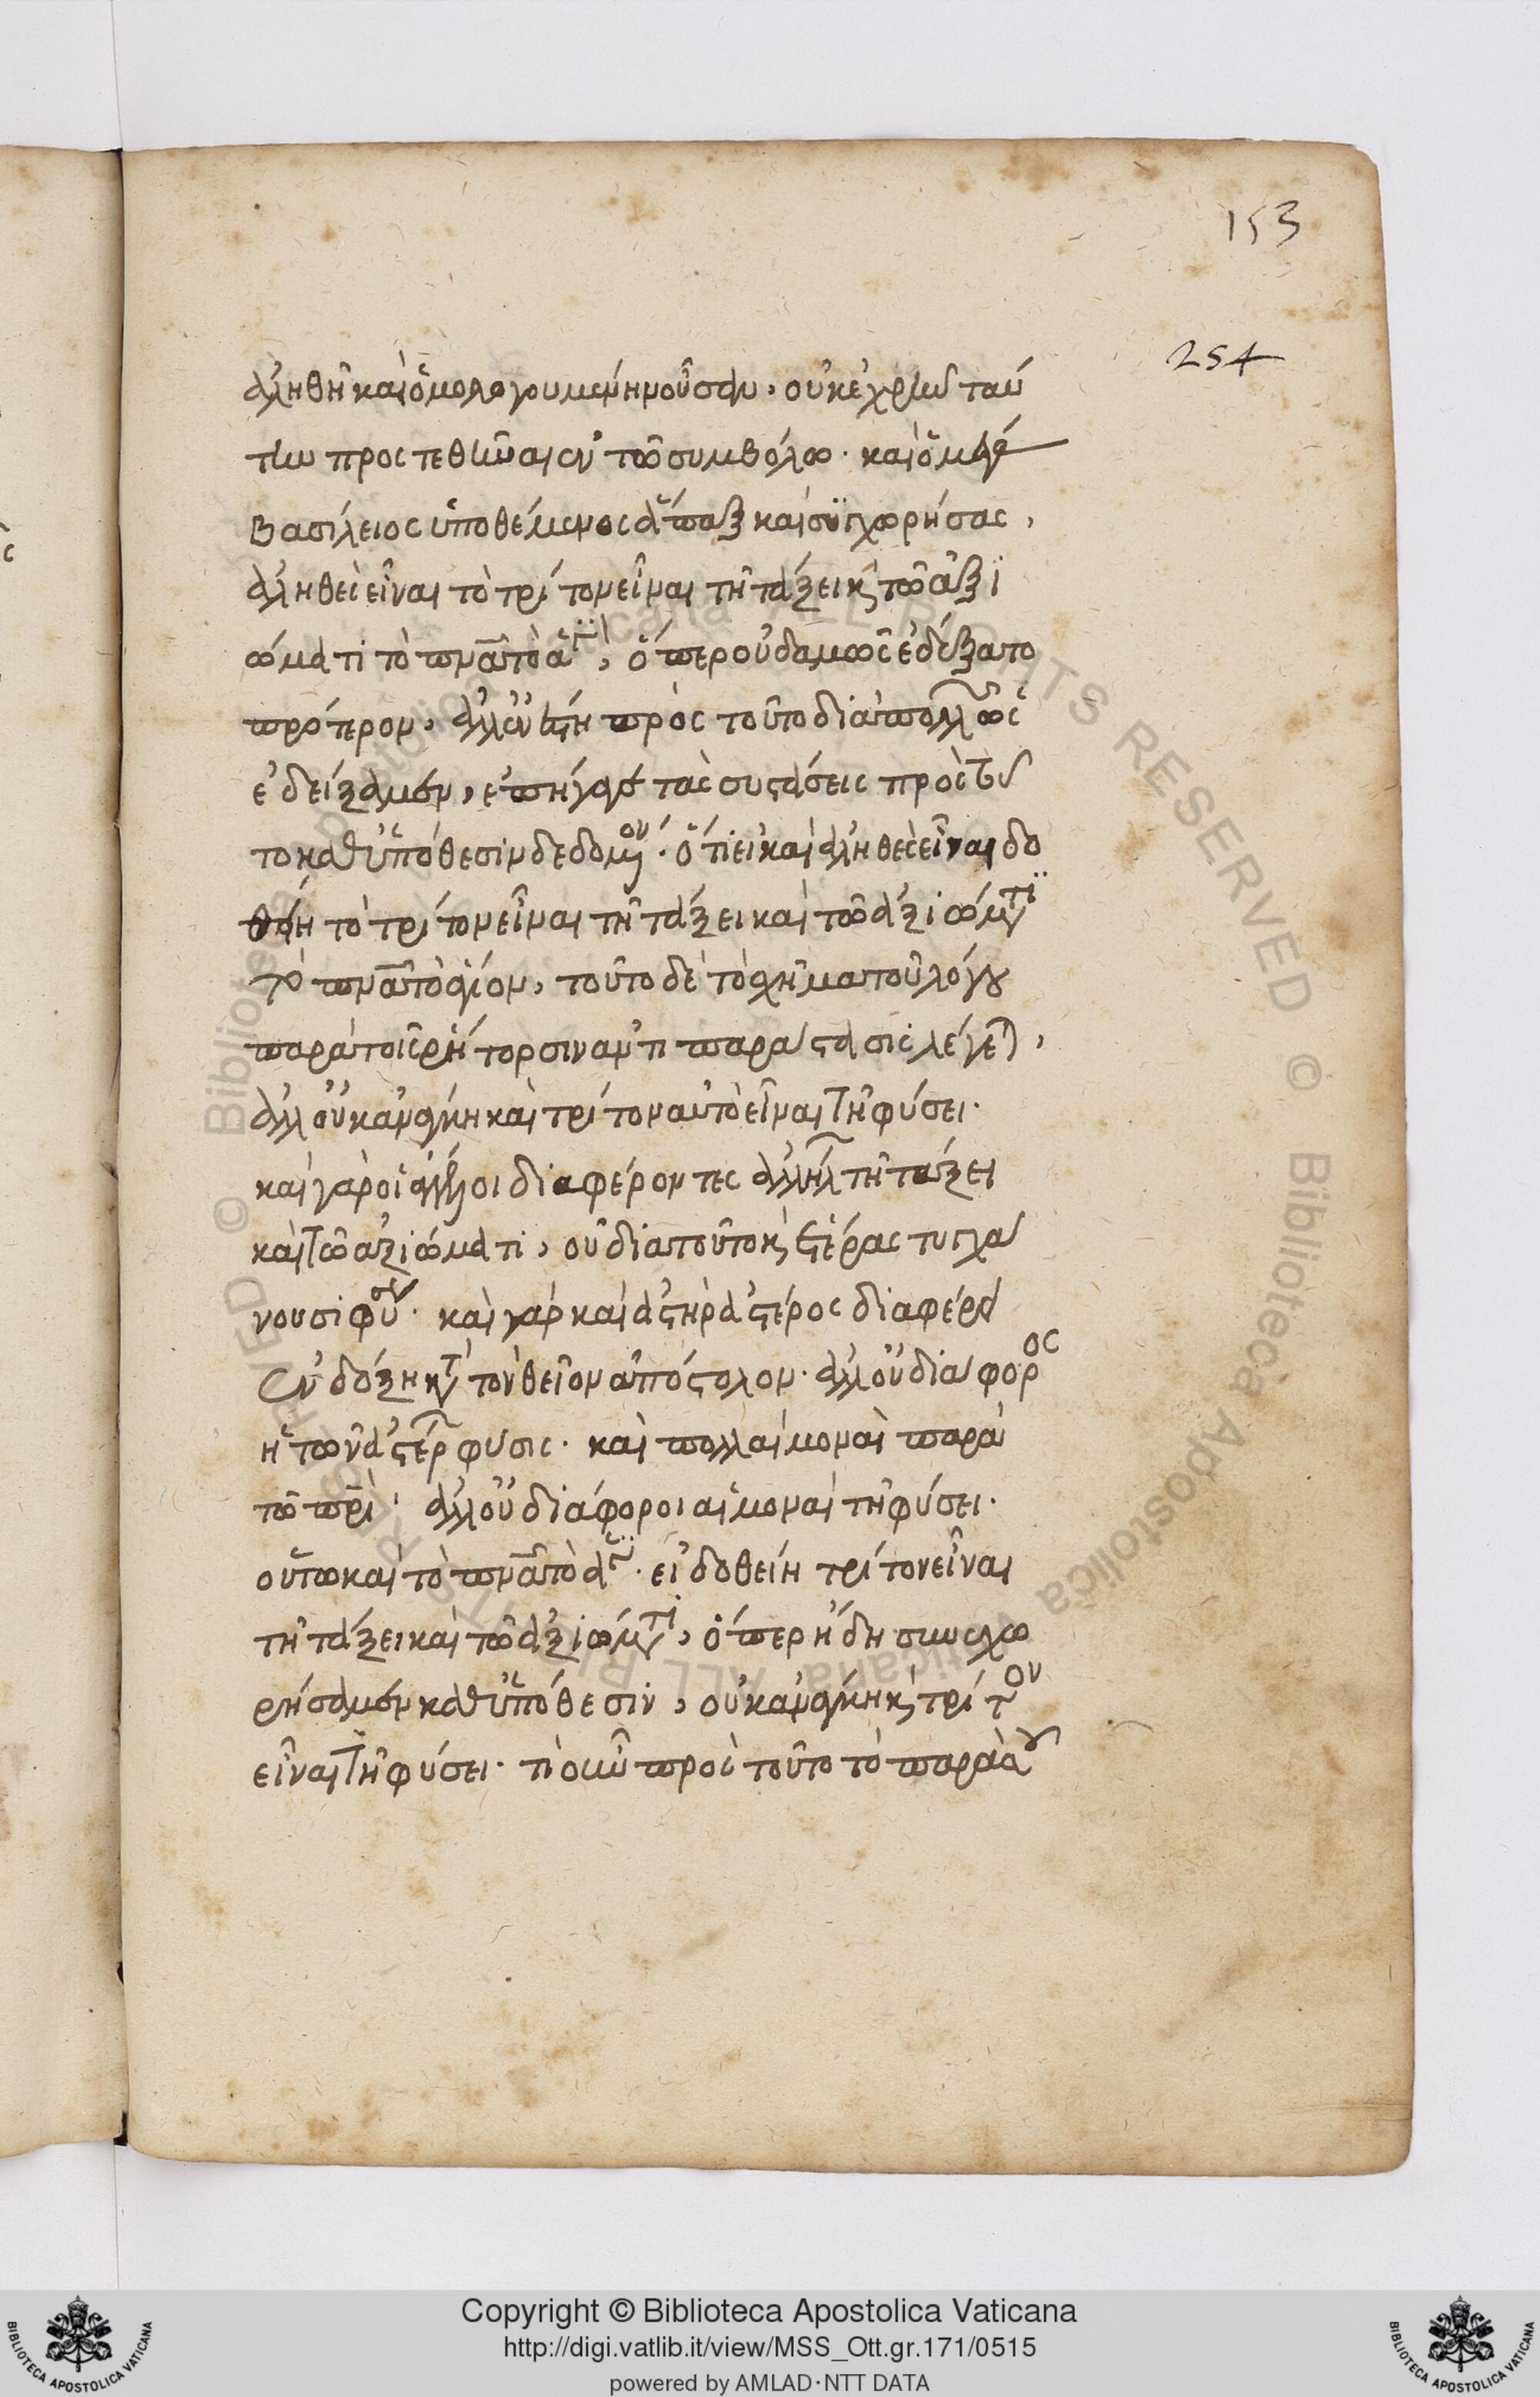 153
254
ἀληθῆ καὶ ὁμολογουμένην οὖσαν, οὐκ ἐχρῆν ταύ
την προστεθῆναι ἐν τῶ συμβόλω. καὶ ὁ μέγας
βασίλειος ὑποθέμενος ἅπαξ καὶ συγχωρήσας,
ἀληθὲς εἶναι τὸ τρίτον εἶναι τῆ τάξει κ τῶ ἀξι
ώματι τὸ πνα τὸ ἅγιον, ὅπερ οὐδαμῶς ἐδέξατο
πρότερον, ἀλλ' ἐνέστη πρὸς τοῦτο διὰ πολλῶν ὡς
ἐδείξαμεν, ἐπήγαγε τὰς συστάσεις πρὸς τοῦ
το καθ' ὑπόθεσιν δεδομένον. ὅτι εἰ καὶ ἀληθὲς εἶναι δο
θείη τὸ τρίτον εἶναι τῆ τάξει καὶ τῶ ἀξιώματι
τὸ πνα τὸ ἅγιον, τοῦτο δὲ τὸ σχῆμα τοῦ λόγου
παρὰ τοῖς ῥήτορσιν ἀντιπαράστασις λέγεται,
ἀλλ' οὐκ ἀνάγκη καὶ τρίτον αὐτὸ εἶναι τῆ φύσει.
καὶ γὰρ οἱ ἄγγελοι διαφέροντες ἀλλήλων τῆ τάξει
καὶ τῶ ἀξιώματι, οὐ διὰ τοῦτο κ ἑτέρας τυγχά
νουσι φύσεως. καὶ γὰρ καὶ ἀστὴρ ἀστέρος διαφέρει
ἐν δόξη κατὰ τὸν θεῖον ἀπόστολον. ἀλλ' οὐ διάφορος
ἡ τῶν ἀστέρων φύσις. καὶ πολλαὶ μοναὶ παρὰ
τῶ πρι. ἀλλ' οὐ διάφοροι αἱ μοναὶ τῆ φύσει.
οὕτω καὶ τὸ πνα τὸ ἅγιον. εἰ δοθείη τρίτον εἶναι
τῆ τάξει καὶ τῶ ἀξιώματι, ὅπερ ἤδη συνεχω
ρήσαμεν καθ' ὑπόθεσιν, οὐκ ἀνάγκη κ τρίτον
εἶναι τῆ φύσει. τί οὖν πρὸς τοῦτο τὸ παρὰ
Copyright © Biblioteca Apostolica Vaticana
http://digi.vatlib.it/view/MSS_Ott.gr.171/0515
powered by AMLAD·NTT DATA